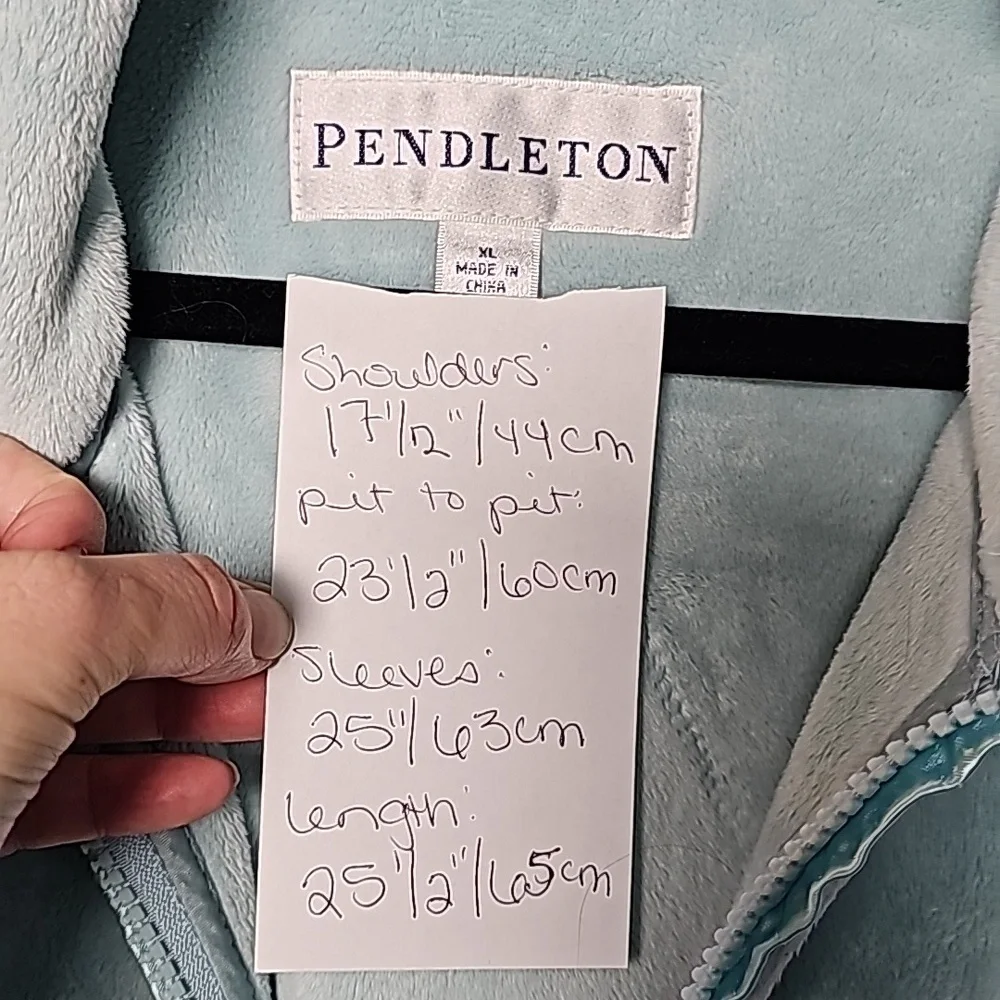 PENDLETON
XL
MADE IN
CHINA
Shoulders:
17 1/2"/44cm
pit to pit:
23 1/2"/60cm
Sleeves:
25"/63cm
length:
25 1/2"/65cm